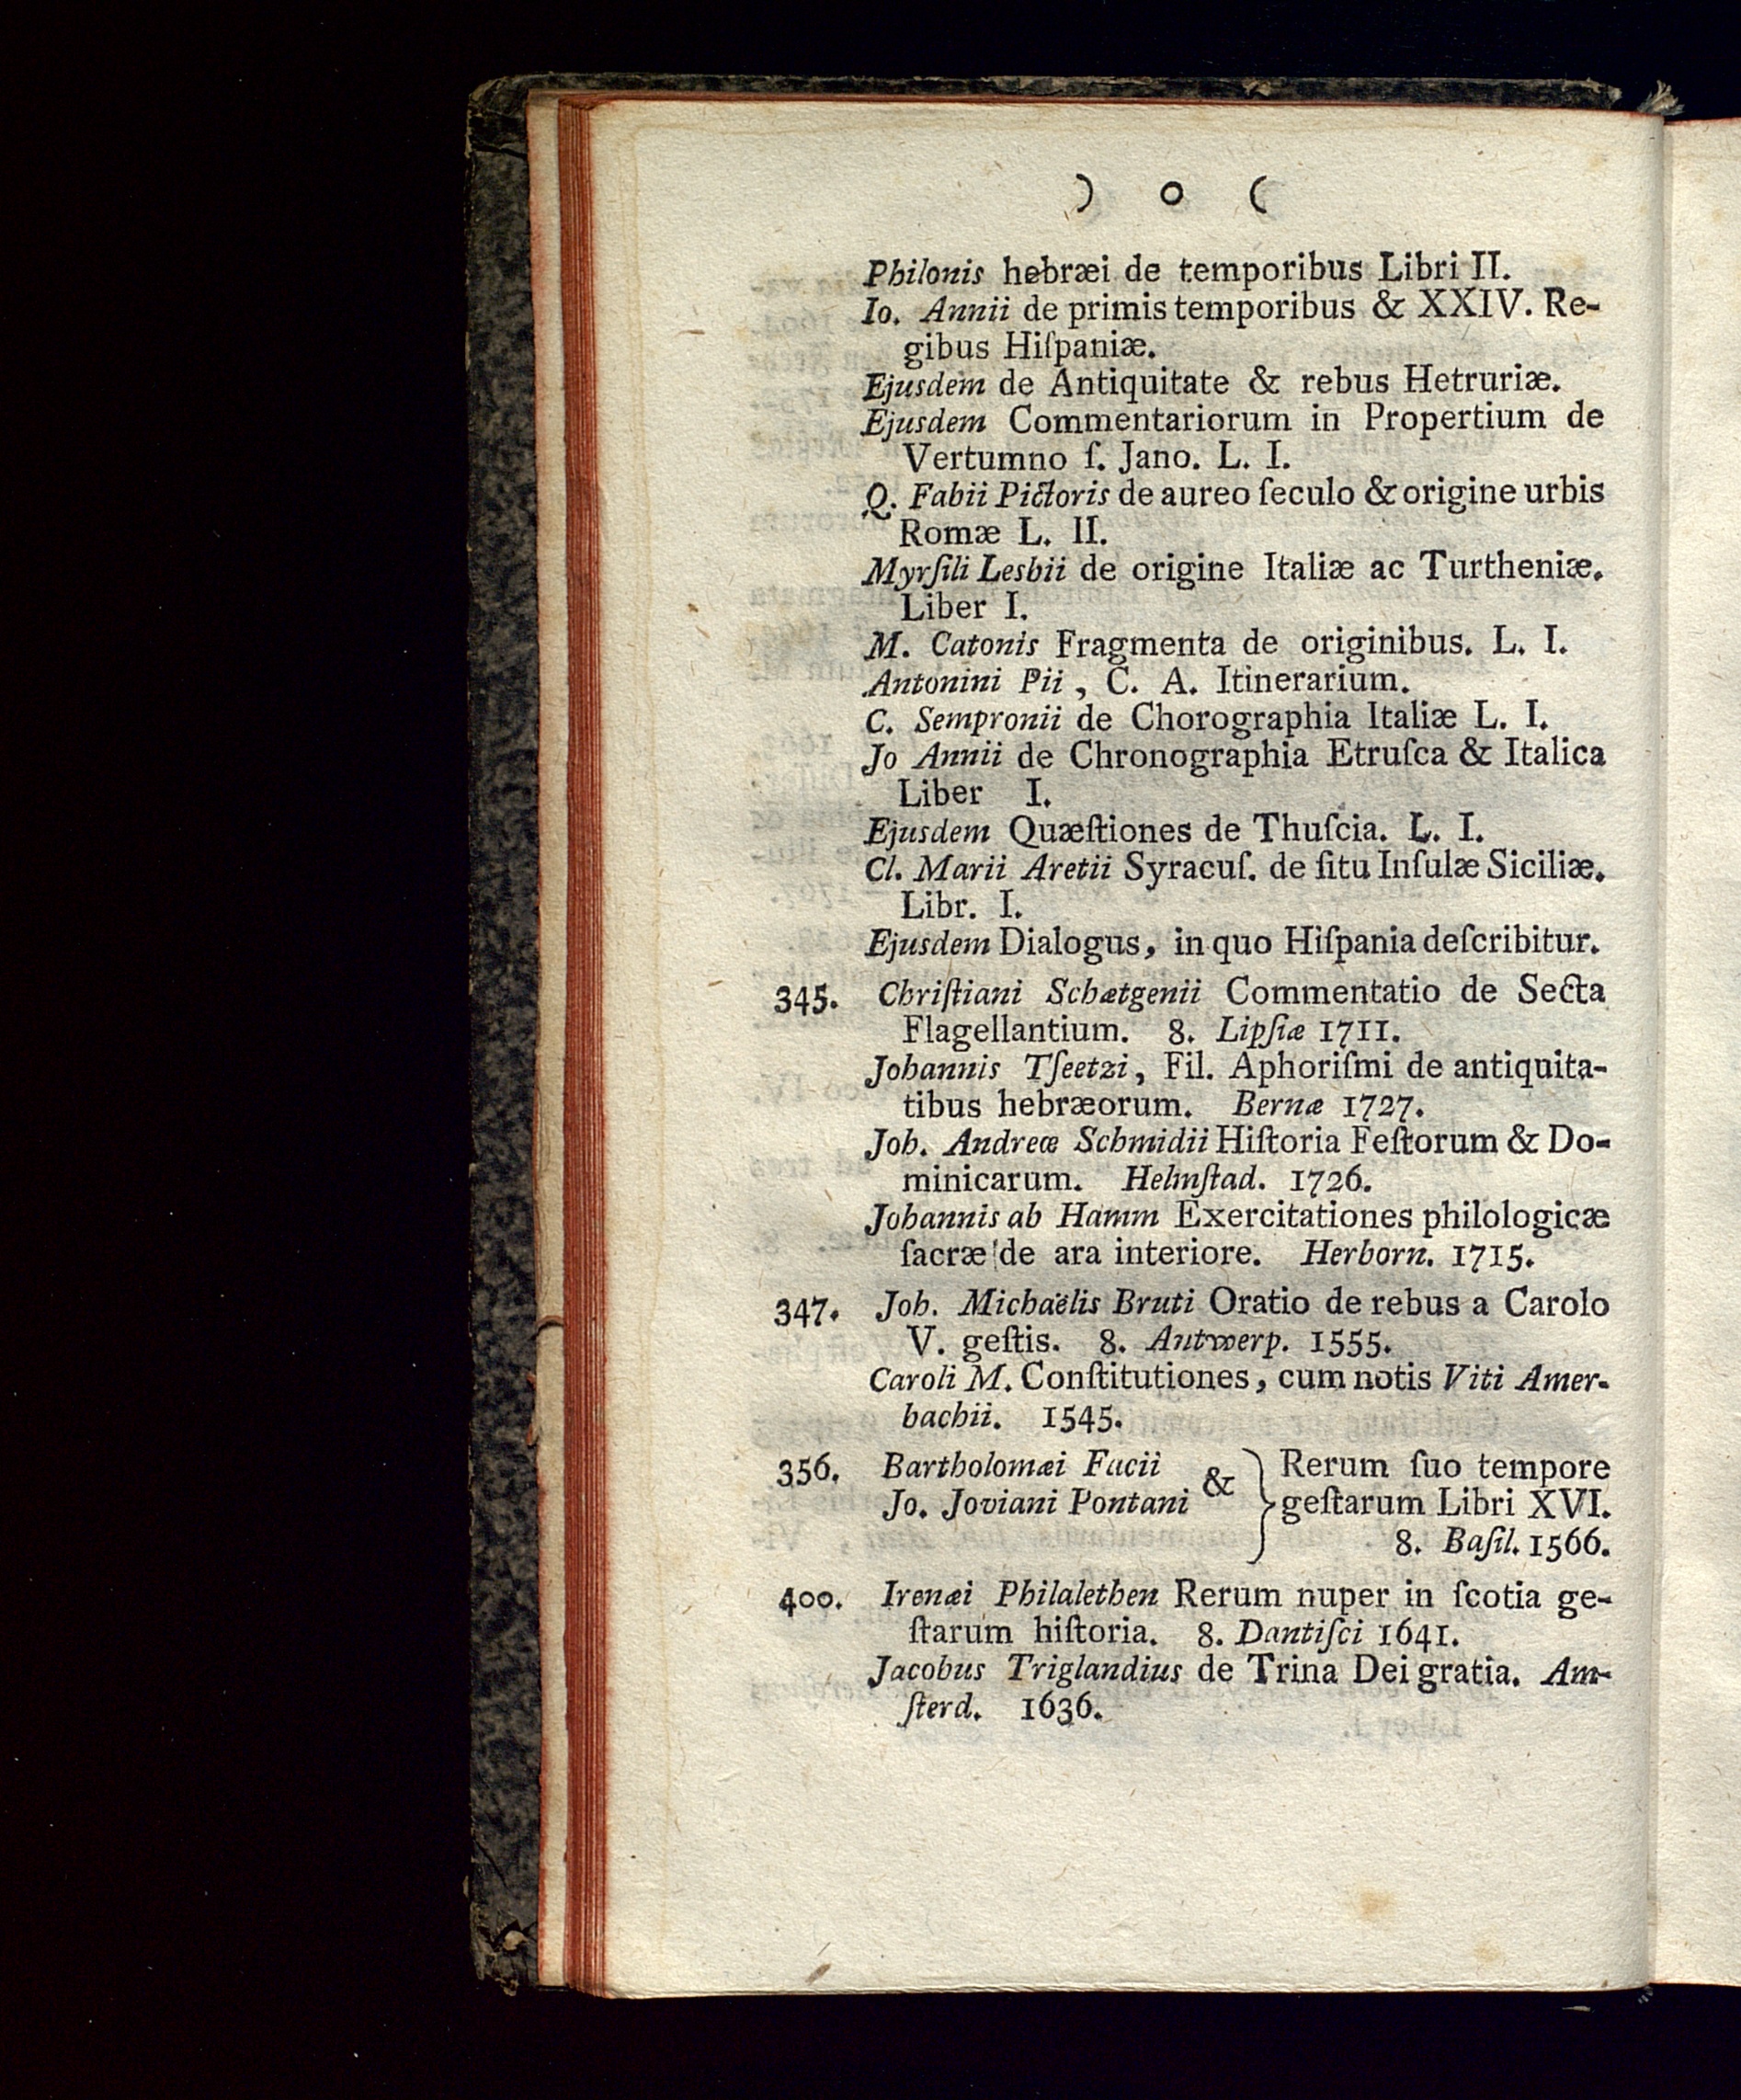 ) o (
Philonis hebræi de temporibus Libri II.
Io. Annii de primis temporibus & XXIV. Re-
gibus Hiſpaniæ.
Ejusdem de Antiquitate & rebus Hetruriæ.
Ejusdem Commentariorum in Propertium de
Vertumno ſ. Jano. L. I.
Q. Fabii Pictoris de aureo ſeculo & origine urbis
Romæ L. II.
Myrſili Lesbii de origine Italiæ ac Turtheniæ.
Liber I.
M. Catonis Fragmenta de originibus. L. I.
Antonini Pii, C. A. Itinerarium.
C. Sempronii de Chorographia Italiæ L. I.
Jo Annii de Chronographia Etruſca & Italica
Liber I.
Ejusdem Quæſtiones de Thuſcia. L. I.
Cl. Marii Aretii Syracuſ. de ſitu Inſulæ Siciliæ.
Libr. I.
Ejusdem Dialogus, in quo Hiſpania deſcribitur.
345. Chriſtiani Schætgenii Commentatio de Secta
Flagellantium. 8. Lipſiæ 1711.
Johannis Tſeetzi, Fil. Aphoriſmi de antiquita-
tibus hebræorum. Bernæ 1727.
Joh. Andreæ Schmidii Hiſtoria Feſtorum & Do-
minicarum. Helmſtad. 1726.
Johannis ab Hamm Exercitationes philologicæ
ſacræ de ara interiore. Herborn. 1715.
347. Joh. Michaëlis Bruti Oratio de rebus a Carolo
V. geſtis. 8. Antwerp. 1555.
Caroli M. Conſtitutiones, cum notis Viti Amer-
bachii. 1545.
356. Bartholomæi Facii & } Rerum ſuo tempore
Jo. Joviani Pontani geſtarum Libri XVI.
8. Baſil. 1566.
400. Irenæi Philalethen Rerum nuper in ſcotia ge-
ſtarum hiſtoria. 8. Dantiſci 1641.
Jacobus Triglandius de Trina Dei gratia. Am-
ſterd. 1636.